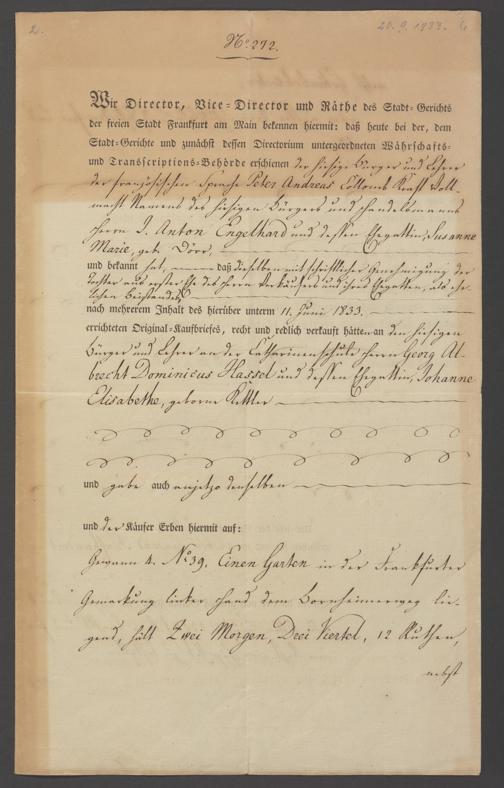 2.
20. 9. 1933.
No. 272.
Wir Director, Vice-Director und Räthe des Stadt-Gerichts
der freien Stadt Frankfurt am Main bekennen hiermit: daß heute bei der, dem
Stadt-Gerichte und zunächst dessen Directorium untergeordneten Währschafts-
und Transcriptions-Behörde erschienen der hiesige Bürger und Lehrer
der französischen Sprache Peter Andreas Collomb Kraft Voll-
macht Namens des hiesigen Bürgers und Handelsmanns
Herrn J. Anton Engelhard und dessen Ehegattin, Susanne
Marie, geb. Dörr,
und bekannt hat, daß dieselben mit schriftlicher Genehmigung der
Tochter aus erster Ehe des Herrn Verkäufers und ihres Ehegatten, als ehe-
lichen Beistandes
nach mehrerem Inhalt des hierüber unterm 11. Juni 1833.
errichteten Original-Kaufbriefes, recht und redlich verkauft hätten an den hiesigen
Bürger und Lehrer an der Catharinenschule Herrn Georg Al-
brecht Dominicus Hassel und dessen Ehegattin, Johanne
Elisabethe, geborne Kettler
und gabe auch anjetzo denselben
und der Käufer Erben hiermit auf:
Gewann 4. No. 39. Einen Garten in der Frankfurter
Gemarkung linker Hand dem Bornheimerweg lie-
gend, hält Zwei Morgen, Drei Viertel, 12 Ruthen,
nebst